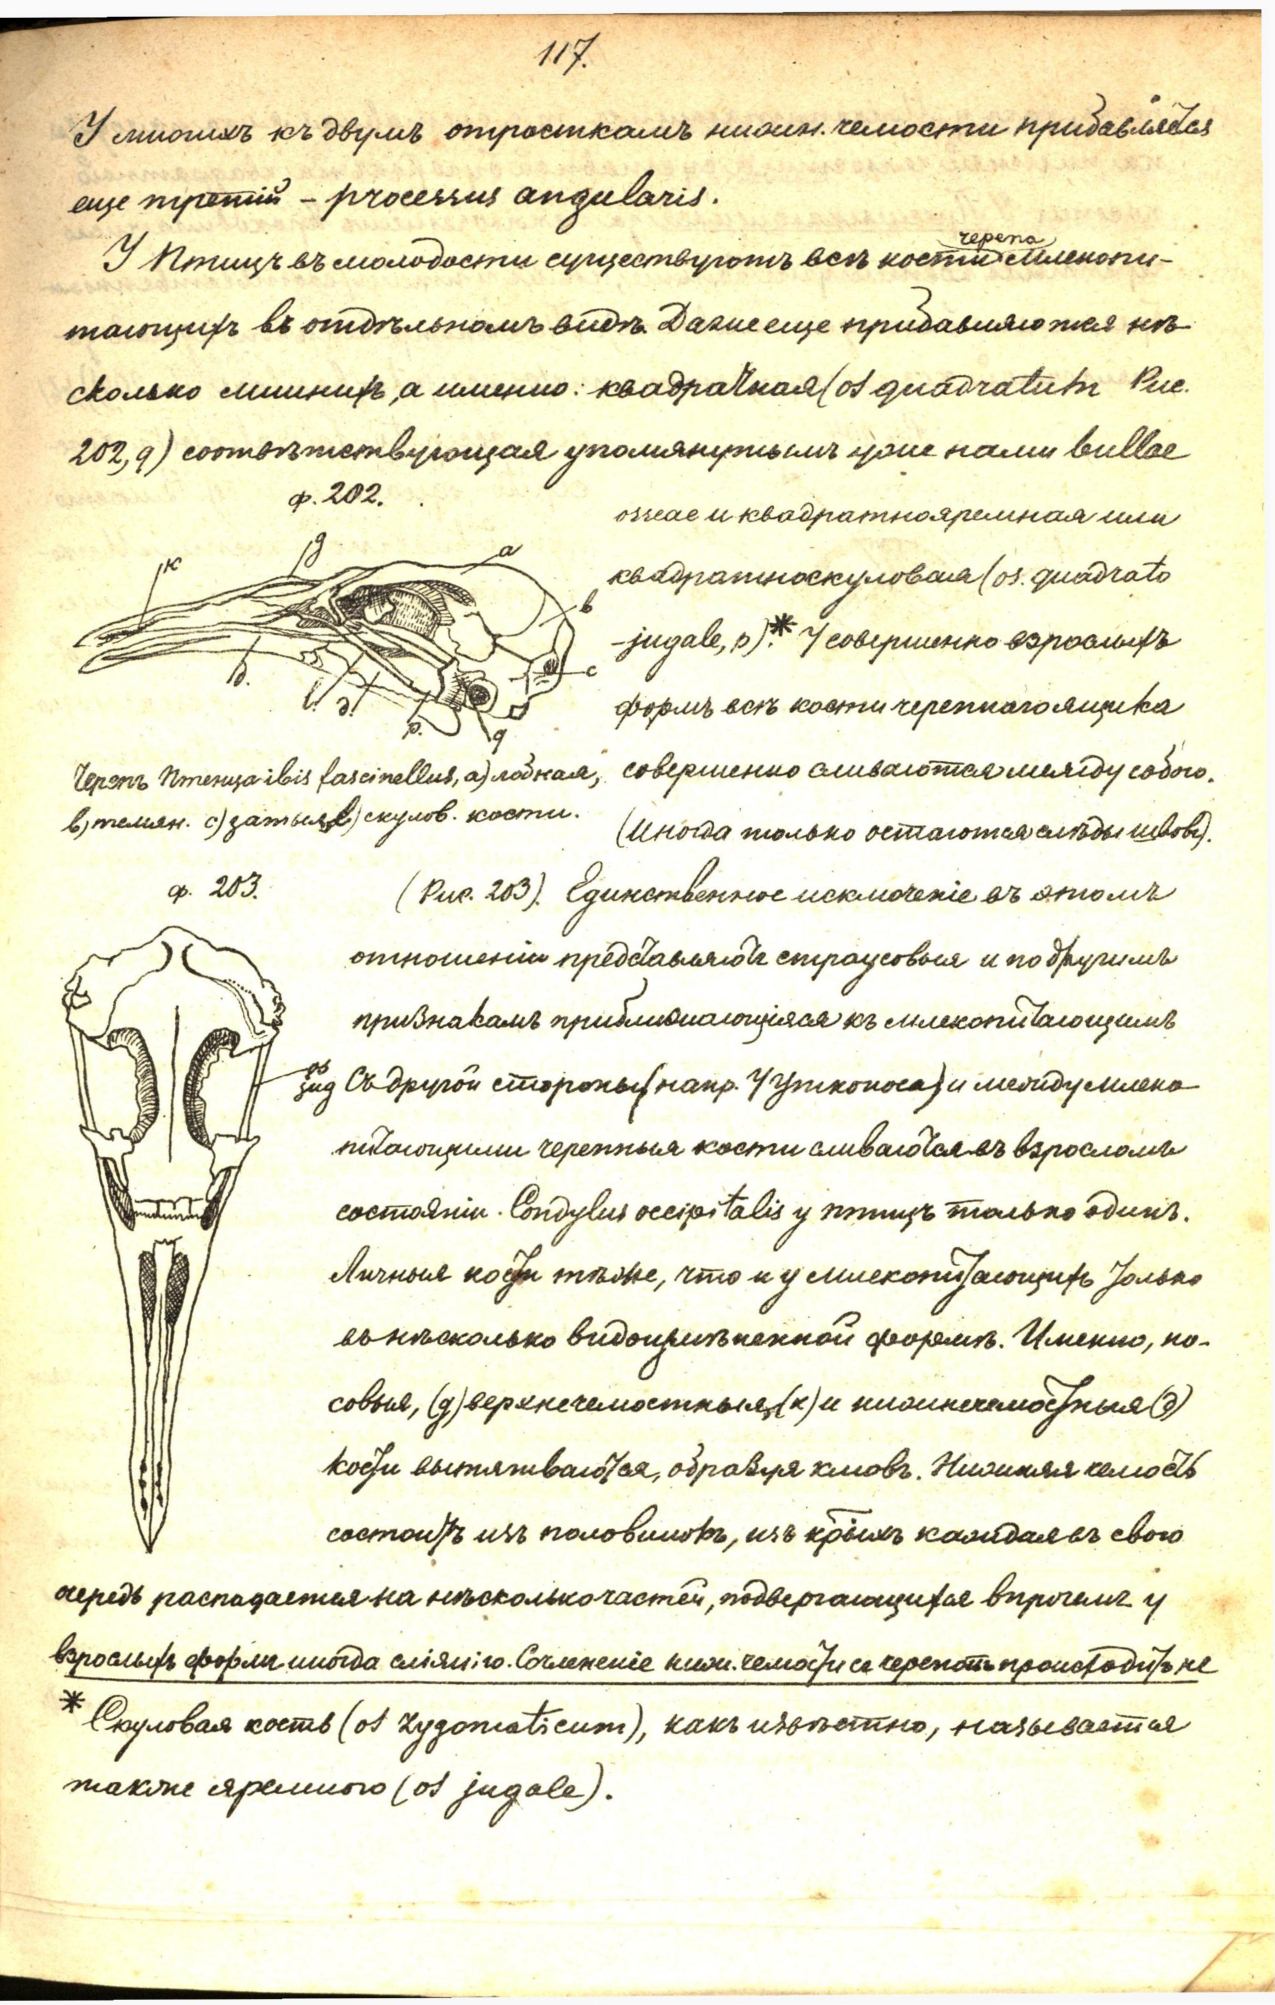 117.
У многихъ къ двумъ отросткамъ нижн. челюсти прибавляется
еще третій – processus angularis.
У Птицъ въ молодости существуютъ всѣ кости черепа Млекопи-
тающихъ въ отдѣльномъ видѣ. Даже еще прибавляются нѣ-
сколько лишнихъ, а именно: квадратная (os quadratum Рис.
202, q) соотвѣтствующая упомянутымъ уже нами bullae
ф. 202.
osseae и квадратнояремная или
квадратноскуловая (os. quadrato
-jugale, p).* У совершенно взрослыхъ
формъ всѣ кости черепнаго ящика
совершенно сливаются между собою.
(Иногда только остаются слѣды швовъ).
к g a b c d. l. д. p. q
Черепъ Птенца ibis fascinellus, a) лобная,
b) темян. c) затыл. l) скулов. кости.
ф. 203.
(Рис. 203). Единственное исключеніе въ этомъ
отношеніи представляютъ страусовыя и по другимъ
признакамъ приближающіяся къ млекопитающимъ
Съ другой стороны (напр. У Утконоса) и между млеко
питающими черепныя кости сливаются въ взросломъ
состояніи. Condylus occipitalis у птицъ только одинъ.
Личныя кости тѣже, что и у млекопитающихъ только
въ нѣсколько видоизмѣненной формѣ. Именно, но-
совыя, (g) верхнечелюстныя (к) и нижнечелюстныя (д)
кости вытягиваются, образуя клювъ. Нижняя челюсть
состоитъ изъ половинокъ, изъ крыхъ каждая въ свою
очередь распадается на нѣсколько частей, подвергающихся впрочемъ у
взрослыхъ формъ иногда сліянію. Сочлененіе нижн. челюсти съ черепомъ происходитъ не
* Скуловая кость (os zygomaticum), какъ извѣстно, называется
также яремною (os jugale).